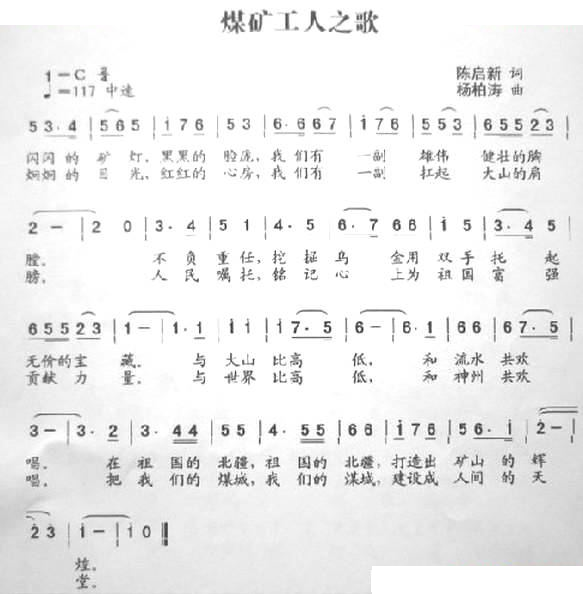 煤矿工人之歌
1=C
陈启新 词
♩=117 中速
杨柏涛 曲
5 3·4 | 5 6 5 | 1 7 6 | 5 3 | 6· 6 6 7 | 1 7 6 | 5 5 3 | 6 5 5 2 3 |
闪闪的 矿 灯,黑黑的 脸庞,我们有 一副 雄伟 健壮的胸
炯炯的 目 光,红红的 心房,我们有 一副 扛起 大山的肩
2 － | 2 0 | 3· 4 | 5 1 | 4· 5 | 6· 7 6 6 | 1 5 | 3· 4 5 |
膛。 不 负 重任,挖 掘乌 金用 双手 托 起
膀。 人 民 嘱托,铭 记心 上为 祖国 富 强
6 5 5 2 3 | 1 － | 1· 1 | 1 1 | 1 7· 5 | 6 － | 6· 1 | 6 6 | 6 7· 5 |
无价的宝 藏。 与 大山 比高 低, 和 流水 共欢
贡献力 量。 与 世界 比高 低, 和 神州 共欢
3 － | 3· 2 | 3· 4 4 | 5 5 | 4· 5 5 | 6 6 | 1 7 6 | 5 6· 1 | 2 －
唱。 在 祖 国的 北疆,祖 国的 北疆,打造出 矿山 的 辉
唱。 把 我 们的 煤城,我 们的 煤城,建设成 人间 的 天
2 2 3 | 1 － | 1 0 ‖
煌。
堂。